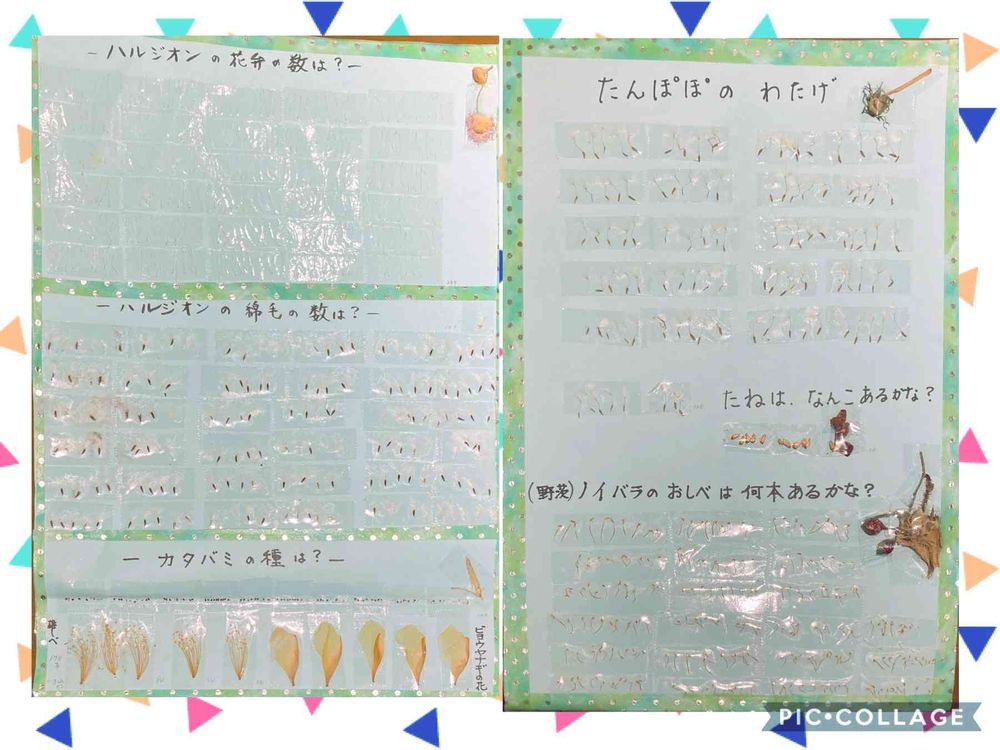 －ハルジオンの花弁の数は？－
－ハルジオンの綿毛の数は？－
－カタバミの種は？－
雄しべ
ビヨウヤナギの花
たんぽぽの わたげ
たねは、なんこあるかな？
(野茨)ノイバラの おしべは 何本あるかな？
PIC•COLLAGE